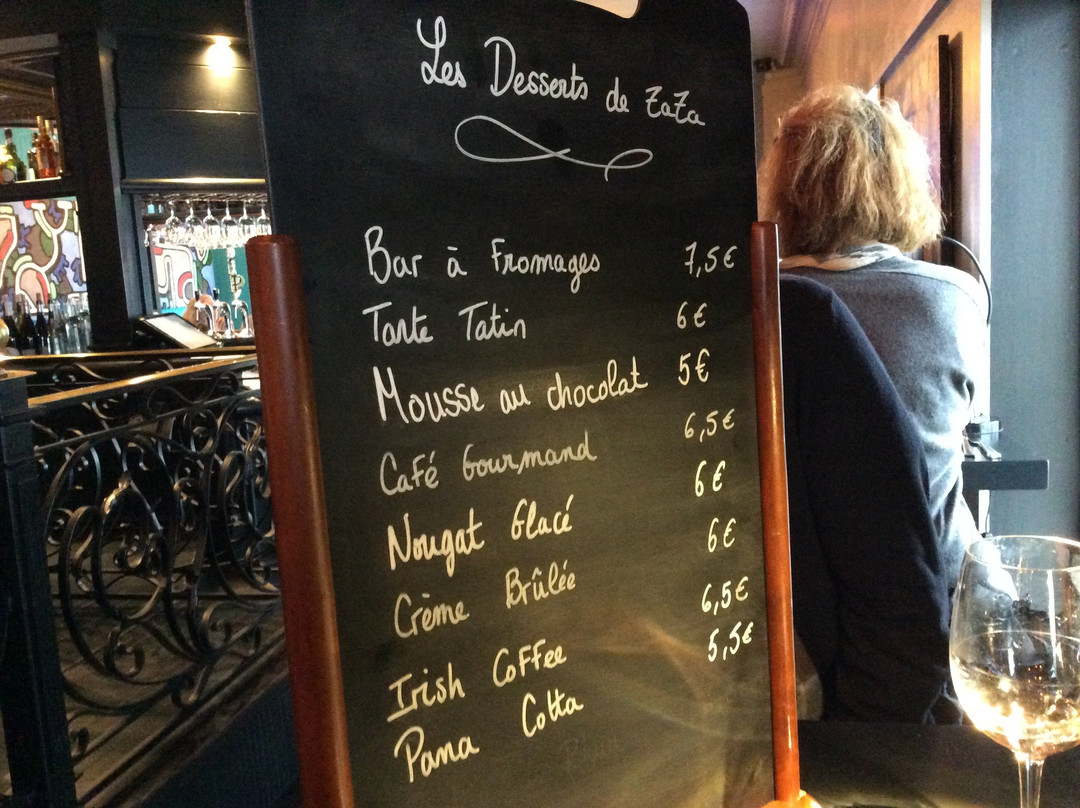 Les Desserts de ZaZa
Bar à Fromages 7,5€
Tarte Tatin 6€
Mousse au chocolat 5€
Café Gourmand 6,5€
Nougat Glacé 6€
Crème Brûlée 6€
Irish Coffee 6,5€
Pana Cotta 5,5€